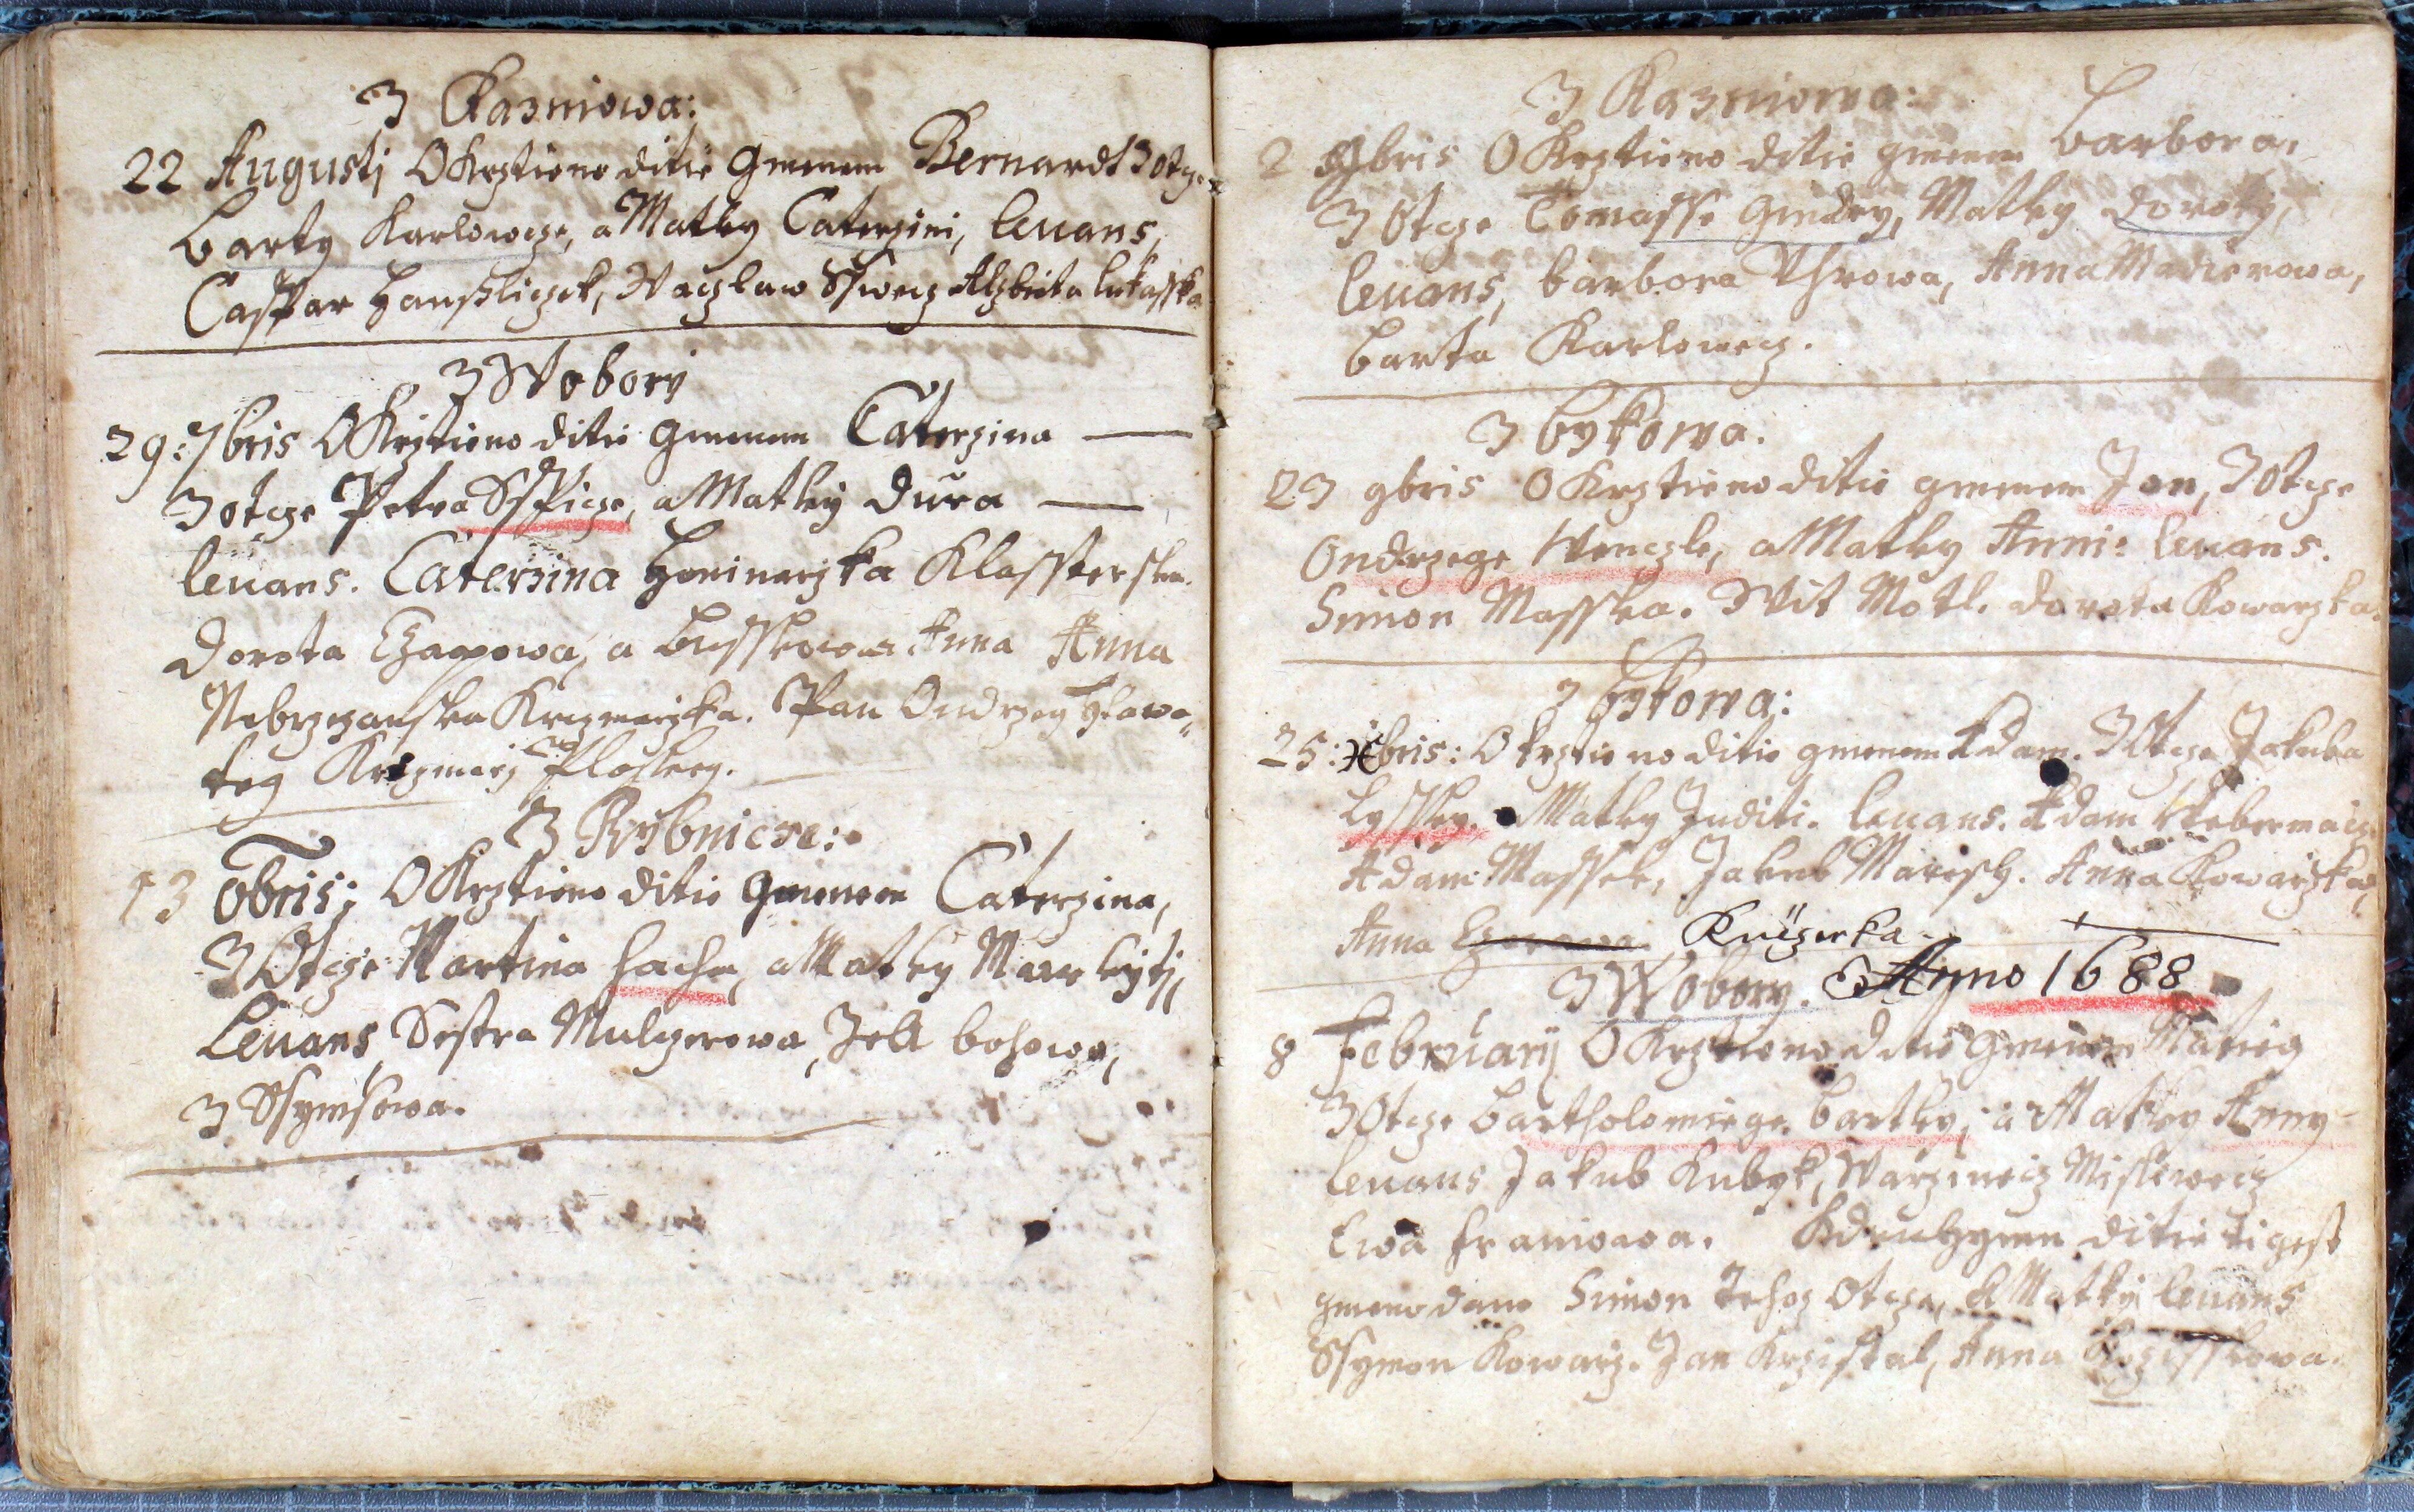 Z Kazniowa:
22 Augustj OKrztieno ditie Gmenem Bernardt Z otcze
Barty Karlowicze, a Matky Caterzini, leuans,
Caspar Hanßliczek, Waczlaw Sswecz Alzbieta lukasska
Z Wobory
29: 7bris OKrztieno ditie Gmenem Caterzina
Z otcze Petra Sspicze, a Matky Dura
leuans. Caterzina Klassterska.
Dorota Czapowa, a Anna Anna
Krczmarzka. Pan Ondrzeg Hlawa-
teg Krczmarz Plaskeg.
Z Rybnicze:
13 8bris: OKrztieno ditie Gmenem Caterzina,
Z Otcze Martina Hacha, a Matky
Leuans Sestra Mulczerowa, bohowa,
Z Ssymsowa.
Z Kazniowa:
2 9bris OKrztieno ditie gmenem Barbora,
Z Otcze Tomasse Gindry, Matky Doroty,
leuans, barbora Uhrowa, Anna Maurerowa,
Barta Karlowicz.
Z bykowa.
23 9bris OKrztieno ditie gmenem Jan, Z Otcze
Ondrzege Wenczle, a Matky Annie leuans.
Simon Masska. Wit Motl. Dorota Kowarzka.
Z bykowa:
25: Xbris: Okrztieno ditie gmenem Adam. Z Otcze Jakuba
Lyssky. Matky Juditi. leuans. Adam
Adam Massek, Jakub Maresch. Anna Kowarzka,
Anna Knizerka.
Z Wobory. Anno 1688
8 February OKrztieno ditie Gmenem Matieg
Z Otcze Bartholomiege Bartky, a Matky Anny
leuans Jakub Kubyk, Warzinecz Miskowecz
Ewa franiowa. ditie ti gest
gmeno dano Simon Tehoz Otcze, A Matky leuans
Ssymon Kowarz. Jan Krzistal, Anna